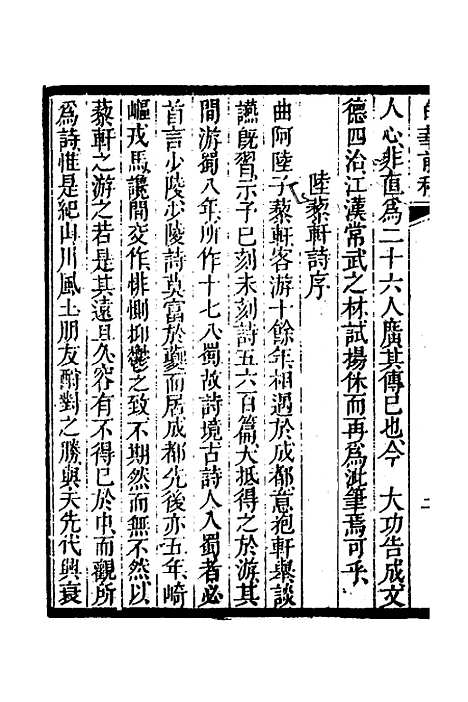 人心非直爲二十六人廣其傳已也今　大功告成文
德四洽江漢常武之材試揚休而再爲泚筆焉可乎
陸藜軒詩序
曲阿陸子藜軒客游十餘年相遇於成都意抱軒舉談
讌旣習示予已刻未刻詩五六百篇大抵得之於游其
間游蜀八年所作十七八蜀故詩境古詩人入蜀者必
首言少陵少陵詩莫富於夔而居成都先後亦五年崎
嶇戎馬讒間交作悱惻抑鬱之致不期然而無不然以
藜軒之游之若是其遠且久容有不得已於中而觀所
爲詩惟是紀山川風土朋友酬對之勝與夫先代興衰